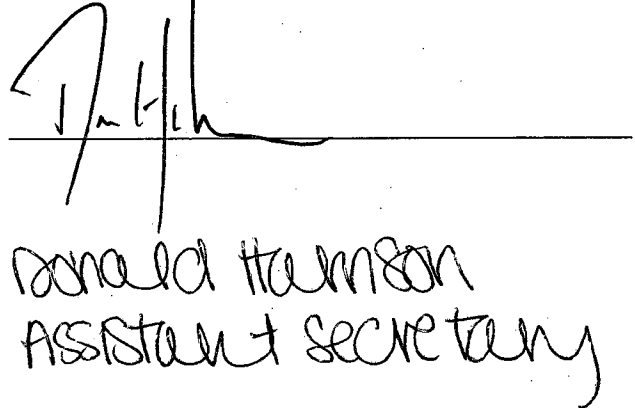 Donald Harrison
Assistant Secretary